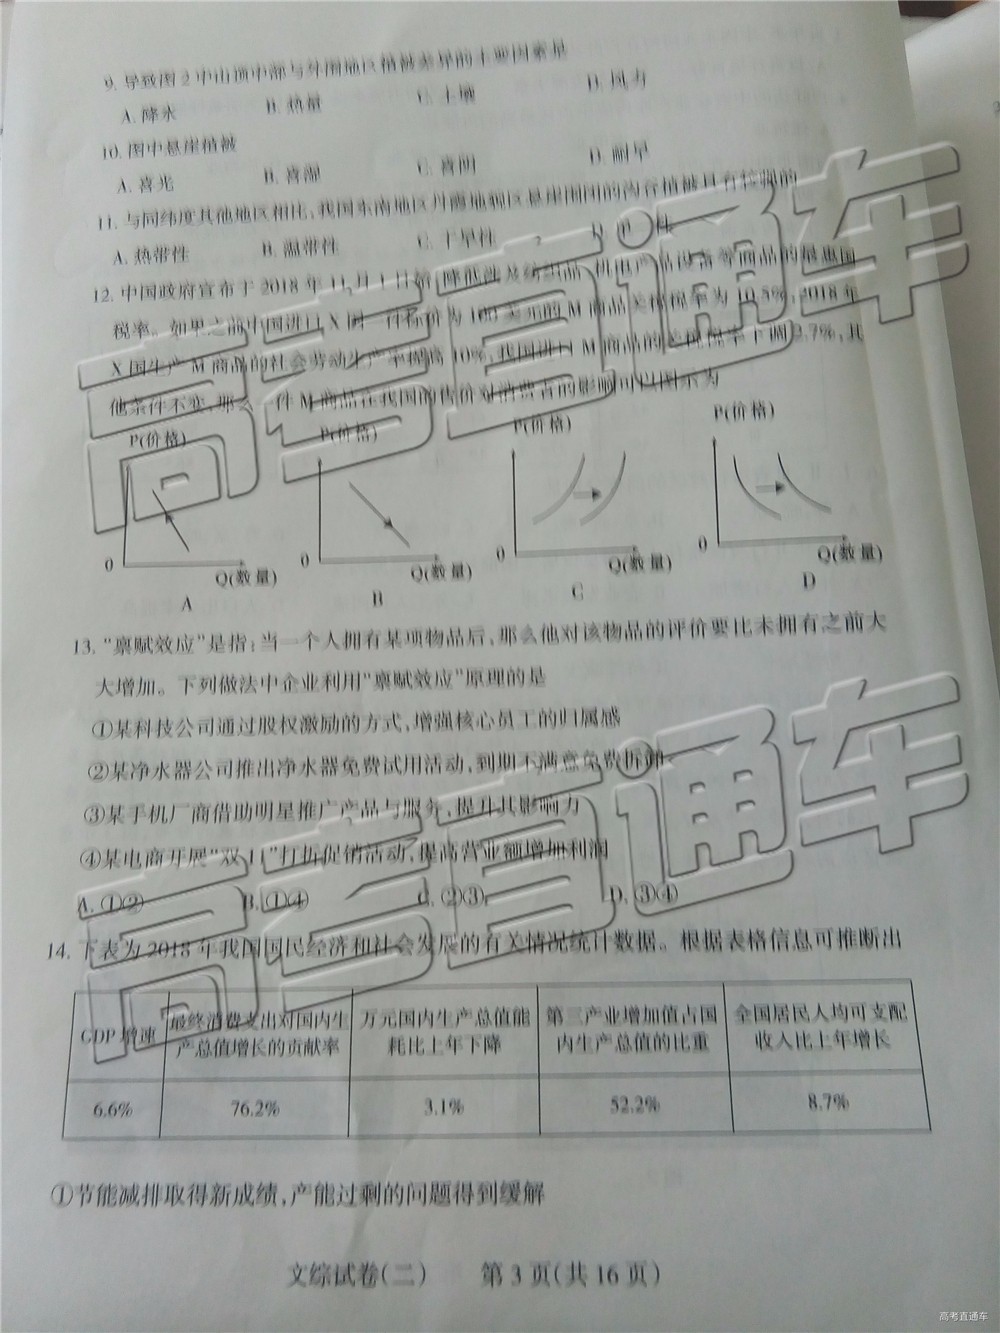 9. 导致图2中山顶中部与外围地区植被差异的主要因素是
A. 降水 B. 热量 C. 土壤 D. 风力
10. 图中悬崖植被
A. 喜光 B. 喜湿 C. 喜阴 D. 耐旱
11. 与同纬度其他地区相比,我国东南地区丹霞地貌区悬崖围闭的沟谷植被具有较强的
A. 热带性 B. 温带性 C. 干旱性
12. 中国政府宣布于2018年11月1日始,降低涉及纺织品、机电产品设备等商品的最惠国
税率。如果之前中国进口X国一件标价为100美元的M商品关税税率为10.5%,2018年
X国生产M商品的社会劳动生产率提高10%,我国进口M商品的关税税率下调2.7%,其
他条件不变,那么一件M商品在我国的售价对消费者的影响可以图示为
P(价格) P(价格) P(价格) P(价格)
0 0 0 0
Q(数量) Q(数量) Q(数量) Q(数量)
A B C D
13. “禀赋效应”是指:当一个人拥有某项物品后,那么他对该物品的评价要比未拥有之前大
大增加。下列做法中企业利用“禀赋效应”原理的是
①某科技公司通过股权激励的方式,增强核心员工的归属感
②某净水器公司推出净水器免费试用活动,到期不满意免费拆卸
③某手机厂商借助明星推广产品与服务,提升其影响力
④某电商开展“双11”打折促销活动,提高营业额增加利润
A. ①② B. ①④ C. ②③ D. ③④
14. 下表为2018年我国国民经济和社会发展的有关情况统计数据。根据表格信息可推断出
GDP增速 最终消费支出对国内生 万元国内生产总值能 第三产业增加值占国 全国居民人均可支配
产总值增长的贡献率 耗比上年下降 内生产总值的比重 收入比上年增长
6.6% 76.2% 3.1% 52.2% 8.7%
①节能减排取得新成绩,产能过剩的问题得到缓解
文综试卷(二) 第3页(共16页)
高考直通车
高考直通车
高考直通车